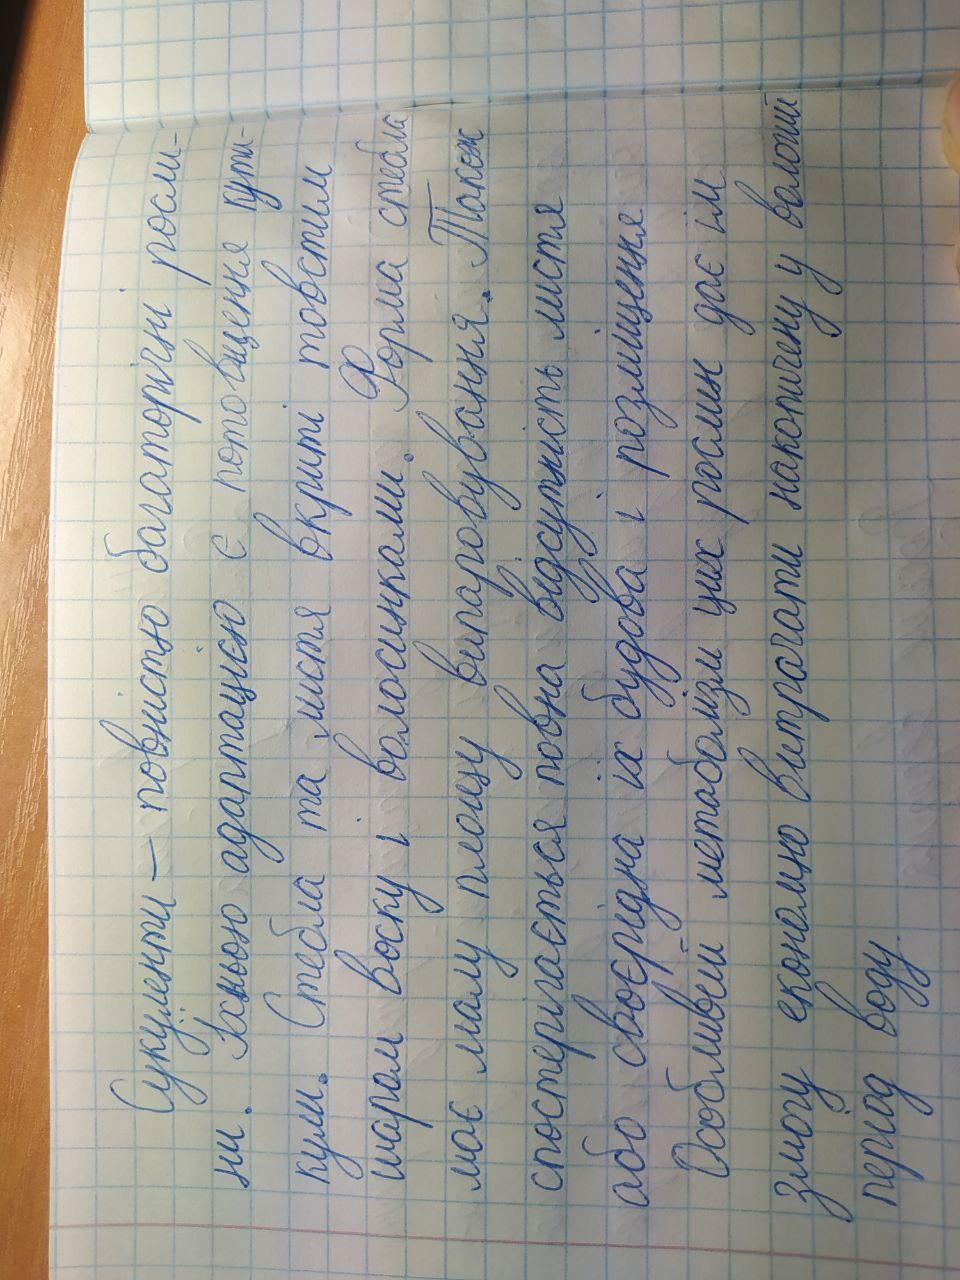 Сукуленти — повністю багаторічні росли-
ни. Їхньою адаптацією є потовщення кути-
кули. Стебла та листя вкриті товстим
шаром воску і волосинками. Форма стебла
має малу площу випаровування. Також
спостерігається повна відсутність листя
або своєрідна їх будова і розміщення
Особливий метаболізм цих рослин дає їм
змогу економно витрачати накопичену у вологий
період воду